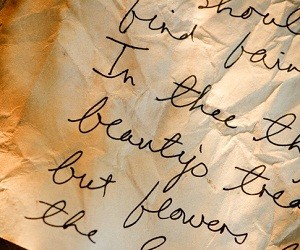 shoul
find fair
In thee th
beauty's trea
but flowers
the